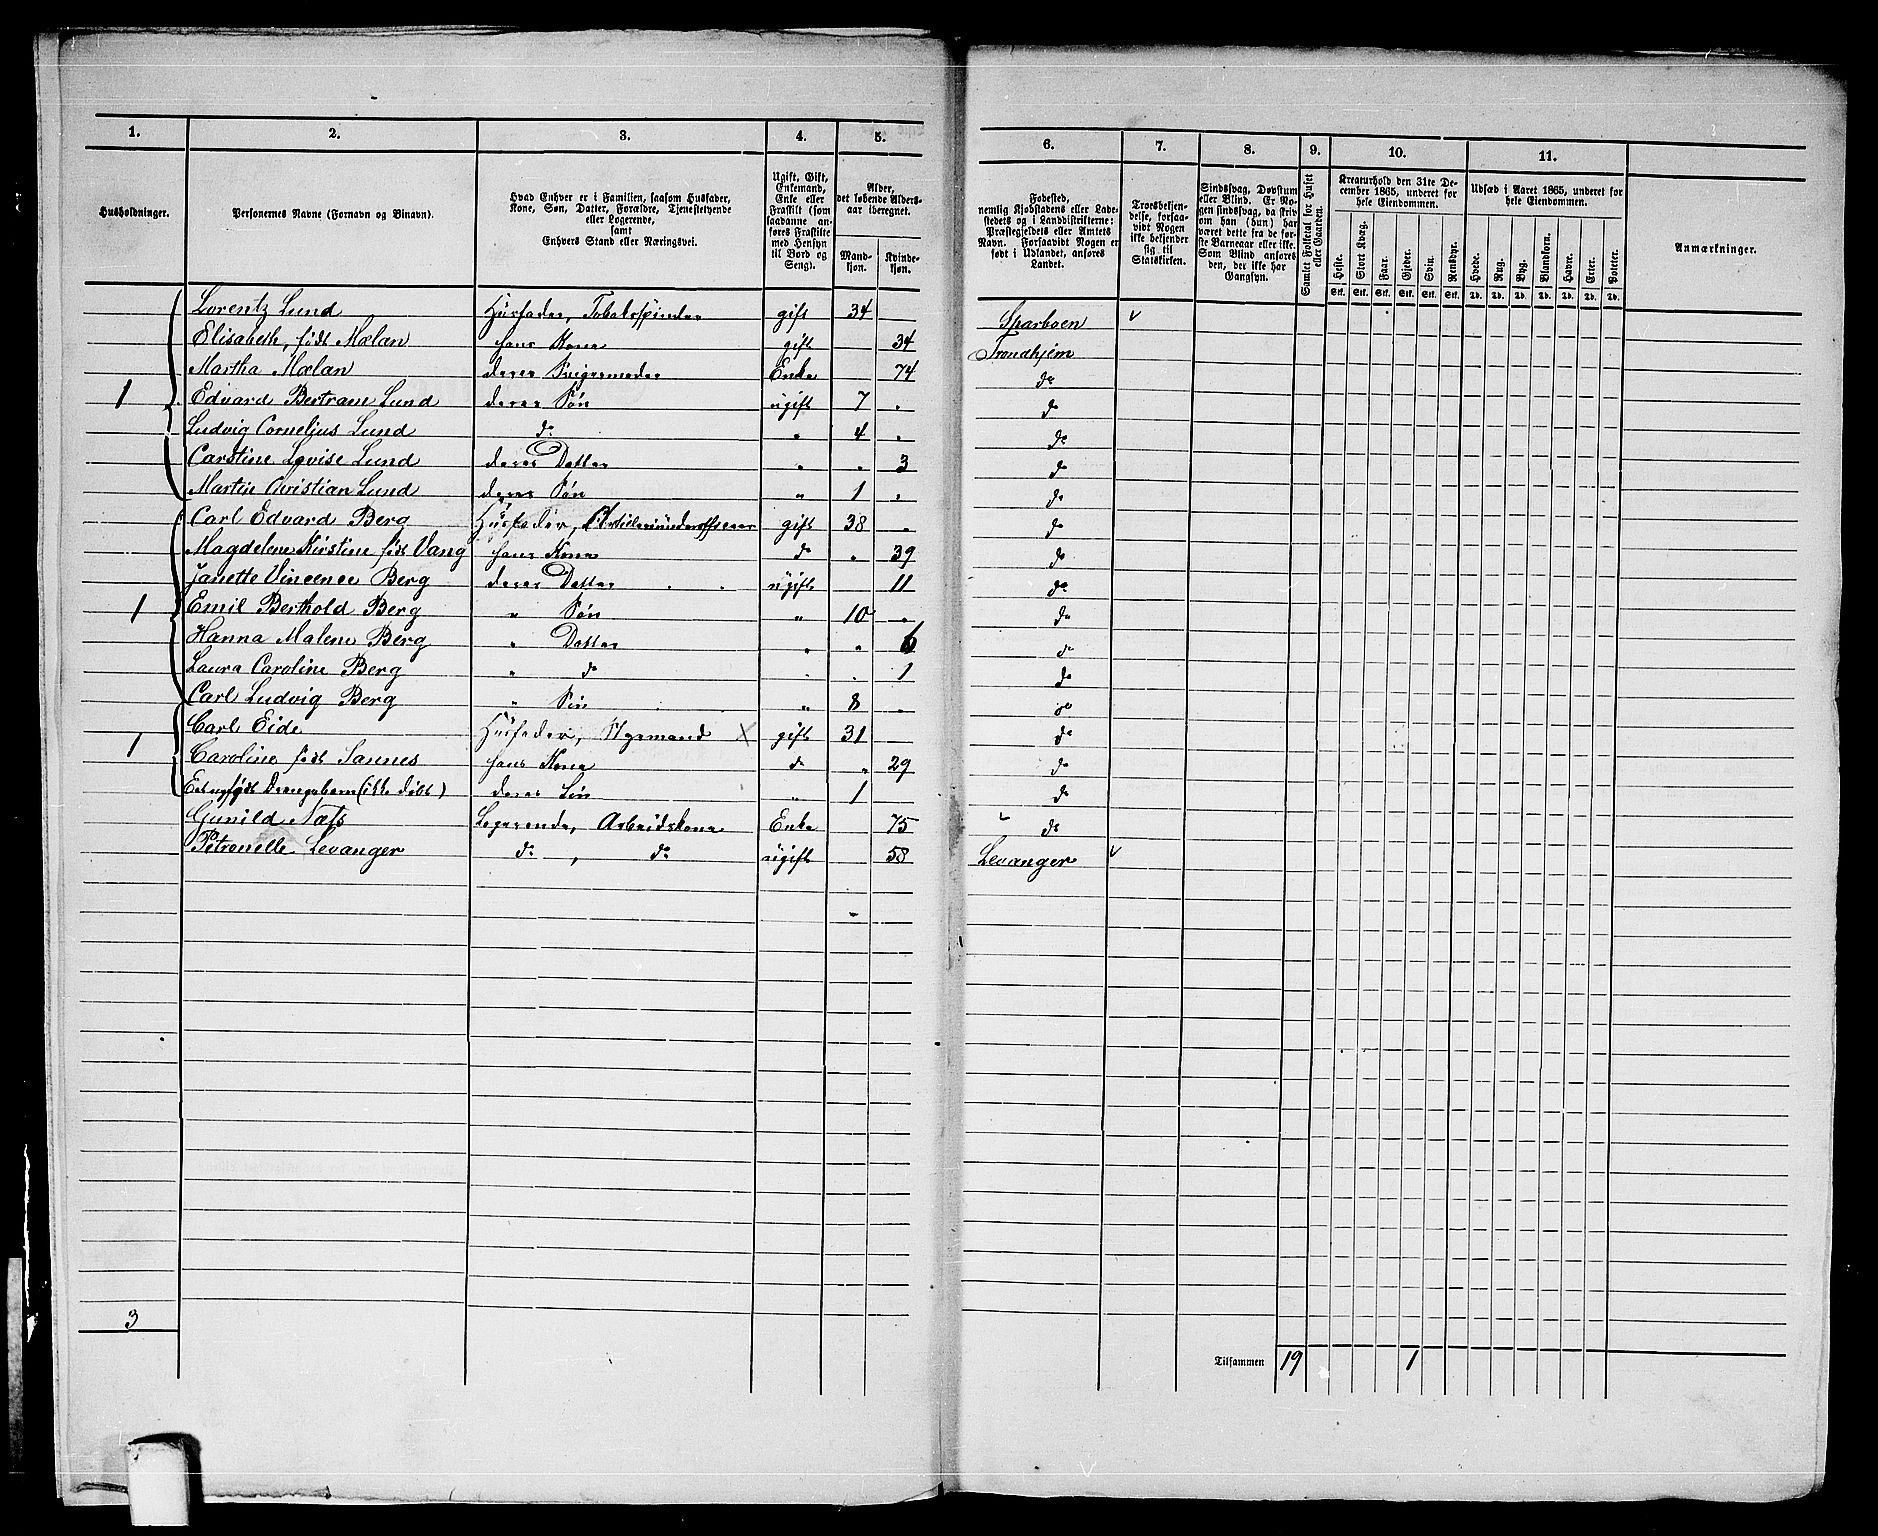 1. 2. 3. 4. 5. 6. 7. 8. 9. 10. 11.
Husholdninger.
Personernes Navne (Fornavn og Binavn).
Hvad Enhver er i Familien, saasom Husfader,
Kone, Søn, Datter, Forældre, Tjenestetyende
eller Logerende,
samt
Enhvers Stand eller Næringsvei.
Ugift, Gift,
Enkemand,
Enke eller
Fraskilt (som
saadanne an-
føres Fraskilte
med Hensyn
til Bord og
Seng).
Alder,
det løbende Alders-
aar iberegnet.
Mand-
kjøn.
Kvinde-
kjøn.
Fødested,
nemlig Kjøbstadens eller Lade-
stedets og i Landdistrikterne:
Præstegjeldets eller Amtets
Navn. Forsaavidt Nogen er
født i Udlandet, anføres
Landet.
Troesbekjen-
delse, forsaa-
vidt Nogen
ikke bekjender
sig til
Statskirken.
Sindssvag, Døvstum
eller Blind. Er No-
gen sindssvag, da skriv
om han (hun) har
været dette fra de før-
ste Barneaar eller ikke.
Som Blind anføres
den, der ikke har
Gangsyn.
Samlet Folketal for Huset
eller Gaarden.
Kreaturhold den 31te De-
cember 1865, underet for
hele Eiendommen.
Heste. Stort Kvæg. Faar. Gjeder. Svin. Rensdyr.
Stk. Stk. Stk. Stk. Stk. Stk.
Udsæd i Aaret 1865, underet for
hele Eiendommen.
Hvede. Rug. Byg. Blandkorn. Havre. Erter. Poteter.
Td. Td. Td. Td. Td. Td. Td.
Anmærkninger.
Lorentz Lund Husfader, Tobaksspinder gift 34 Sparboen
Elisabeth, født Mælan hans Kone gift 34 Trondhjem
Martha Mælan deres Svigermoder Enke 74 do
1 Edvard Bertram Lund deres Søn ugift 7 do
Ludvig Cornelius Lund do " 4 do
Carstine Lovise Lund deres Datter " 3 do
Martin Christian Lund deres Søn " 1 do
Carl Edvard Berg Husfader, Artilleriunderofficeer gift 38 do
Magdelene Kirstine født Vang hans Kone do 39 do
Janette Vincence Berg deres Datter ugift 11 do
1 Emil Berthold Berg " Søn " 10 do
Hanna Malene Berg " Datter " 6 do
Laura Caroline Berg " do 1 do
Carl Ludvig Berg " Søn " 8 do
1 Carl Eide Husfader, Styrmand gift 31 do
Caroline født Sannes hans Kone do 29 do
Et nyfødt Drengebarn (ikke døbt) deres Søn " 1 do
Gunild Næss Logerende, Arbeidskone Enke 75 do
Petronelle Levanger do, do ugift 58 Levanger
3 Tilsammen 19 1